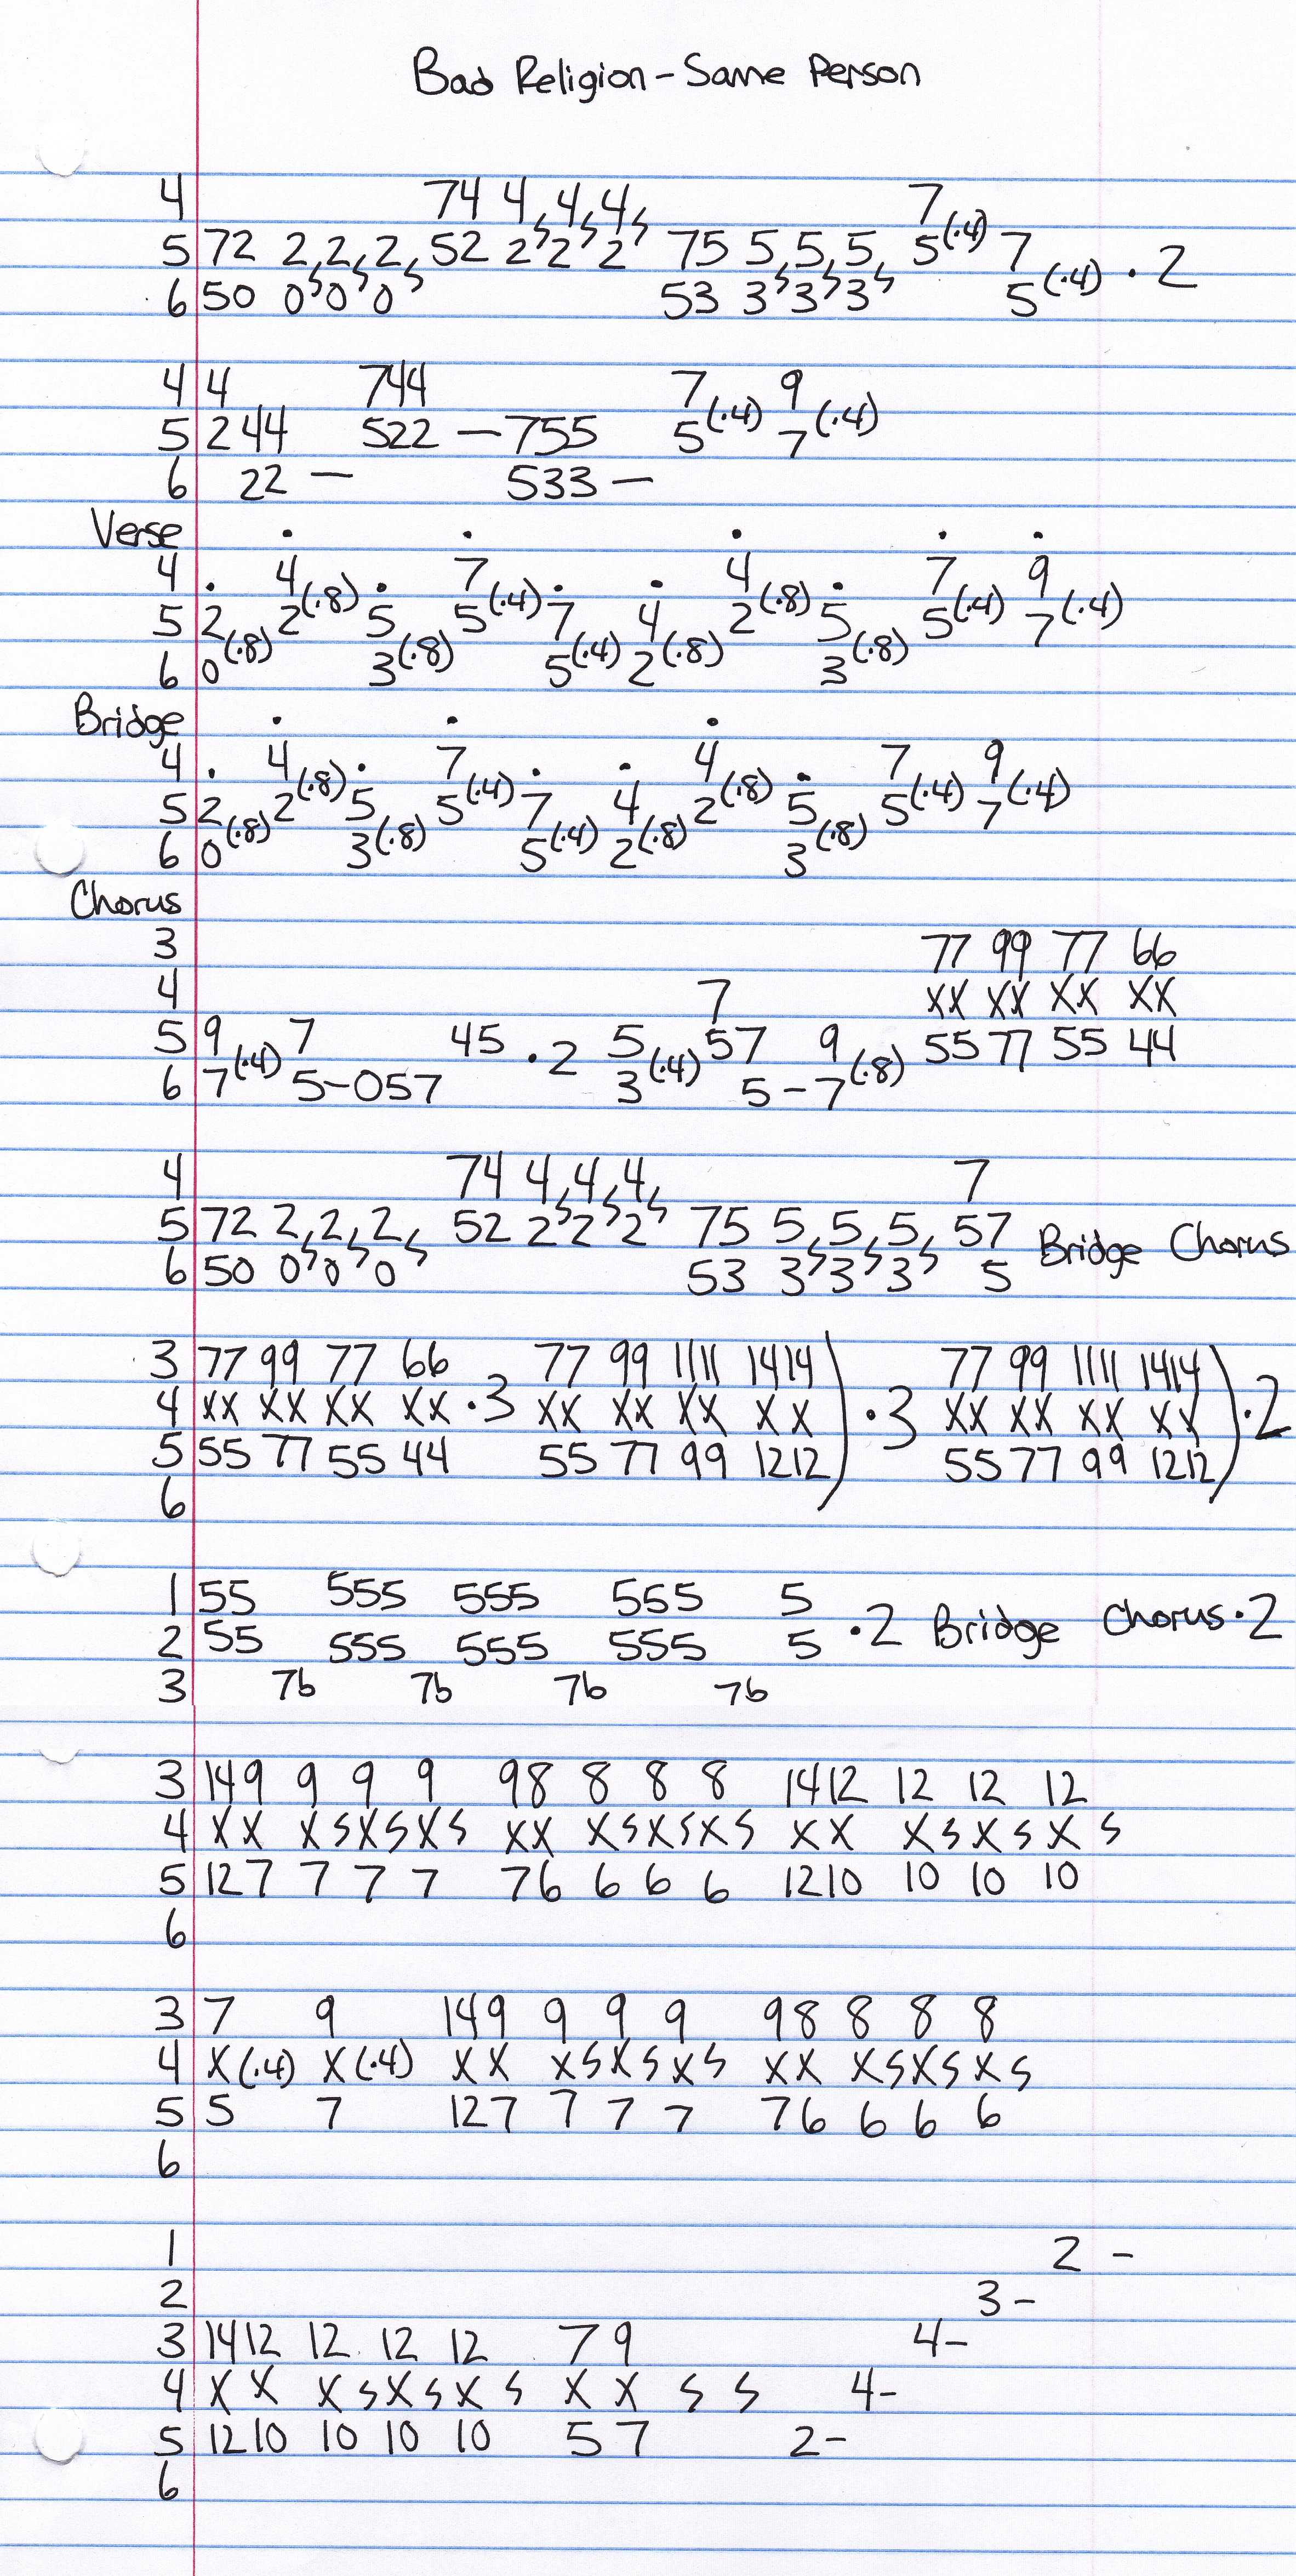 Bad Religion - Same Person
4 74 4, 4, 4, 7
5 72 2, 2, 2, 52 2 2 2 75 5, 5, 5, 5(·4) 7
6 50 0 0 0 53 3 3 3 5(·4) · 2
4 4 744 7 9
5 2 44 522 — 755 5(·4) 7(·4)
6 22 — 533 —
Verse
4 4 7 4 7 9
5 2 2(·8) 5 5(·4) 7 4 2(·8) 5 5(·4) 7(·4)
6 0(·8) 3(·8) 5(·4) 2(·8) 3(·8)
Bridge
4 4 7 4 7 9
5 2 2(·8) 5 5(·4) 7 4 2(·8) 5 5(·4) 7(·4)
6 0(·8) 3(·8) 5(·4) 2(·8) 3(·8)
Chorus
3 77 99 77 66
4 7 XX XX XX XX
5 9 7 45 · 2 5 57 9 55 77 55 44
6 7(·4) 5-057 3(·4) 5-7(·8)
4 74 4, 4, 4, 7
5 72 2, 2, 2, 52 2 2 2 75 5, 5, 5, 57 Bridge Chorus
6 50 0 0 0 53 3 3 3 5
3 77 99 77 66 77 99 1111 1414 77 99 1111 1414
4 XX XX XX XX · 3 XX XX XX XX ) · 3 XX XX XX XX ) · 2
5 55 77 55 44 55 77 99 1212 55 77 99 1212
6
1 55 555 555 555 5
2 55 555 555 555 5 · 2 Bridge Chorus · 2
3 76 76 76 76
3 149 9 9 9 98 8 8 8 1412 12 12 12
4 XX XSXSXS XX XSXSXS XX XSXSXS
5 127 7 7 7 76 6 6 6 1210 10 10 10
6
3 7 9 149 9 9 9 98 8 8 8
4 X(·4) X(·4) XX XSXSXS XX XSXSXS
5 5 7 127 7 7 7 76 6 6 6
6
1 2 -
2 3 -
3 1412 12 12 12 79 4-
4 XX XSXSXS XX S S 4-
5 1210 10 10 10 57 2-
6